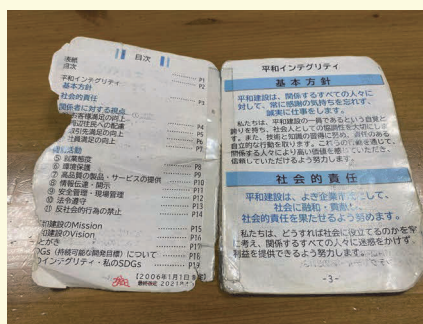 目次
表紙
目次
平和インテグリティ ……… P1
基本方針 ……… P2
社会的責任 ……… P3
関係者に対する視点
お客様満足の向上
周辺住民への配慮 ……… P4
取引先満足の向上 ……… P5
社員満足の向上 ……… P6
P7
活動
⑤ 営業態度 ……… P8
⑥ 環境保護 ……… P9
⑦ 高品質の製品・サービスの提供 ……… P10
⑧ 情報伝達・開示 ……… P11
⑨ 安全管理・現場管理 ……… P12
⑩ 法令遵守 ……… P13
⑪ 反社会的行為の禁止 ……… P14
和建設のMission ……… P15
和建設のVision ……… P16
とがき ……… P17
DGs（持続可能な開発目標）について ……… P18
のインテグリティ・私のSDGs ……… P19
【2006年1月1日
最終改定 2021年
平和インテグリティ
基本方針
平和建設は、関係するすべての人々に
対して、常に感謝の気持ちを忘れず、
誠実に仕事をします。
私たちは、平和建設の一員であるという自覚と
誇りを持ち、社会人としての協調性を大切にしま
す。また、技術と知識の習得に努め、責任のある
自立的な行動を取ります。これらの行動を通じて、
関係する人々により高い価値を感じていただき、
信頼していただけるよう努力します。
社会的責任
平和建設は、よき企業市民として、
社会に融和・貢献し
社会的責任を果たせるよう努めます。
私たちは、どうすれば社会に役立てるのかを常
に考え、関係するすべての人々に迷惑をかけず、
利益を提供できるよう努力します。
-3-